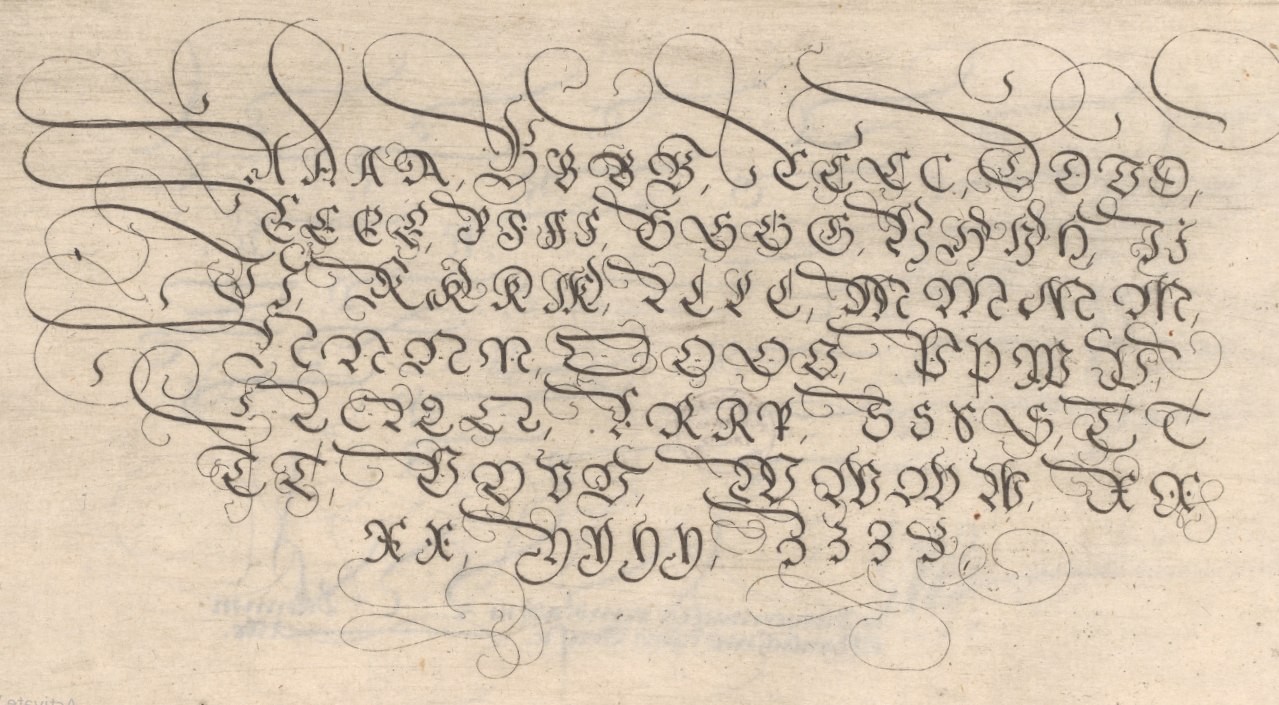 A A A A, B B B B, C C C C, D D D D,
E E E E, F F F F, G G G G, H H H H, I I
I I, K K K K, L L L L, M M M M,
N N N N, O O O O, P P P P,
Q Q Q Q, R R R R, S S S S, T T
T T, V V V V, W W W W, X X
X X, Y Y Y Y, Z Z Z Z